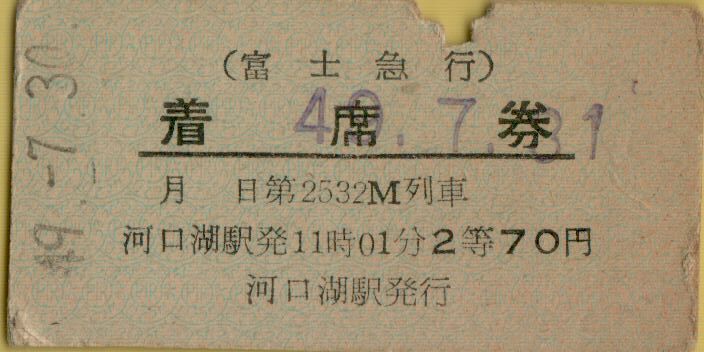 (富士急行)
着席券
49.7.31
月 日第2532M列車
河口湖駅発11時01分2等70円
河口湖駅発行
49.-7.30.